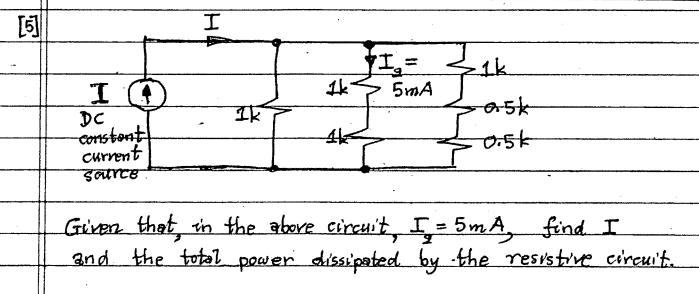 [5]
I
I
DC
constant
current
source
1k
1k
1k
I₂ =
5mA
1k
0.5k
0.5k
Given that, in the above circuit, I₂ = 5mA, find I
and the total power dissipated by the resistive circuit.